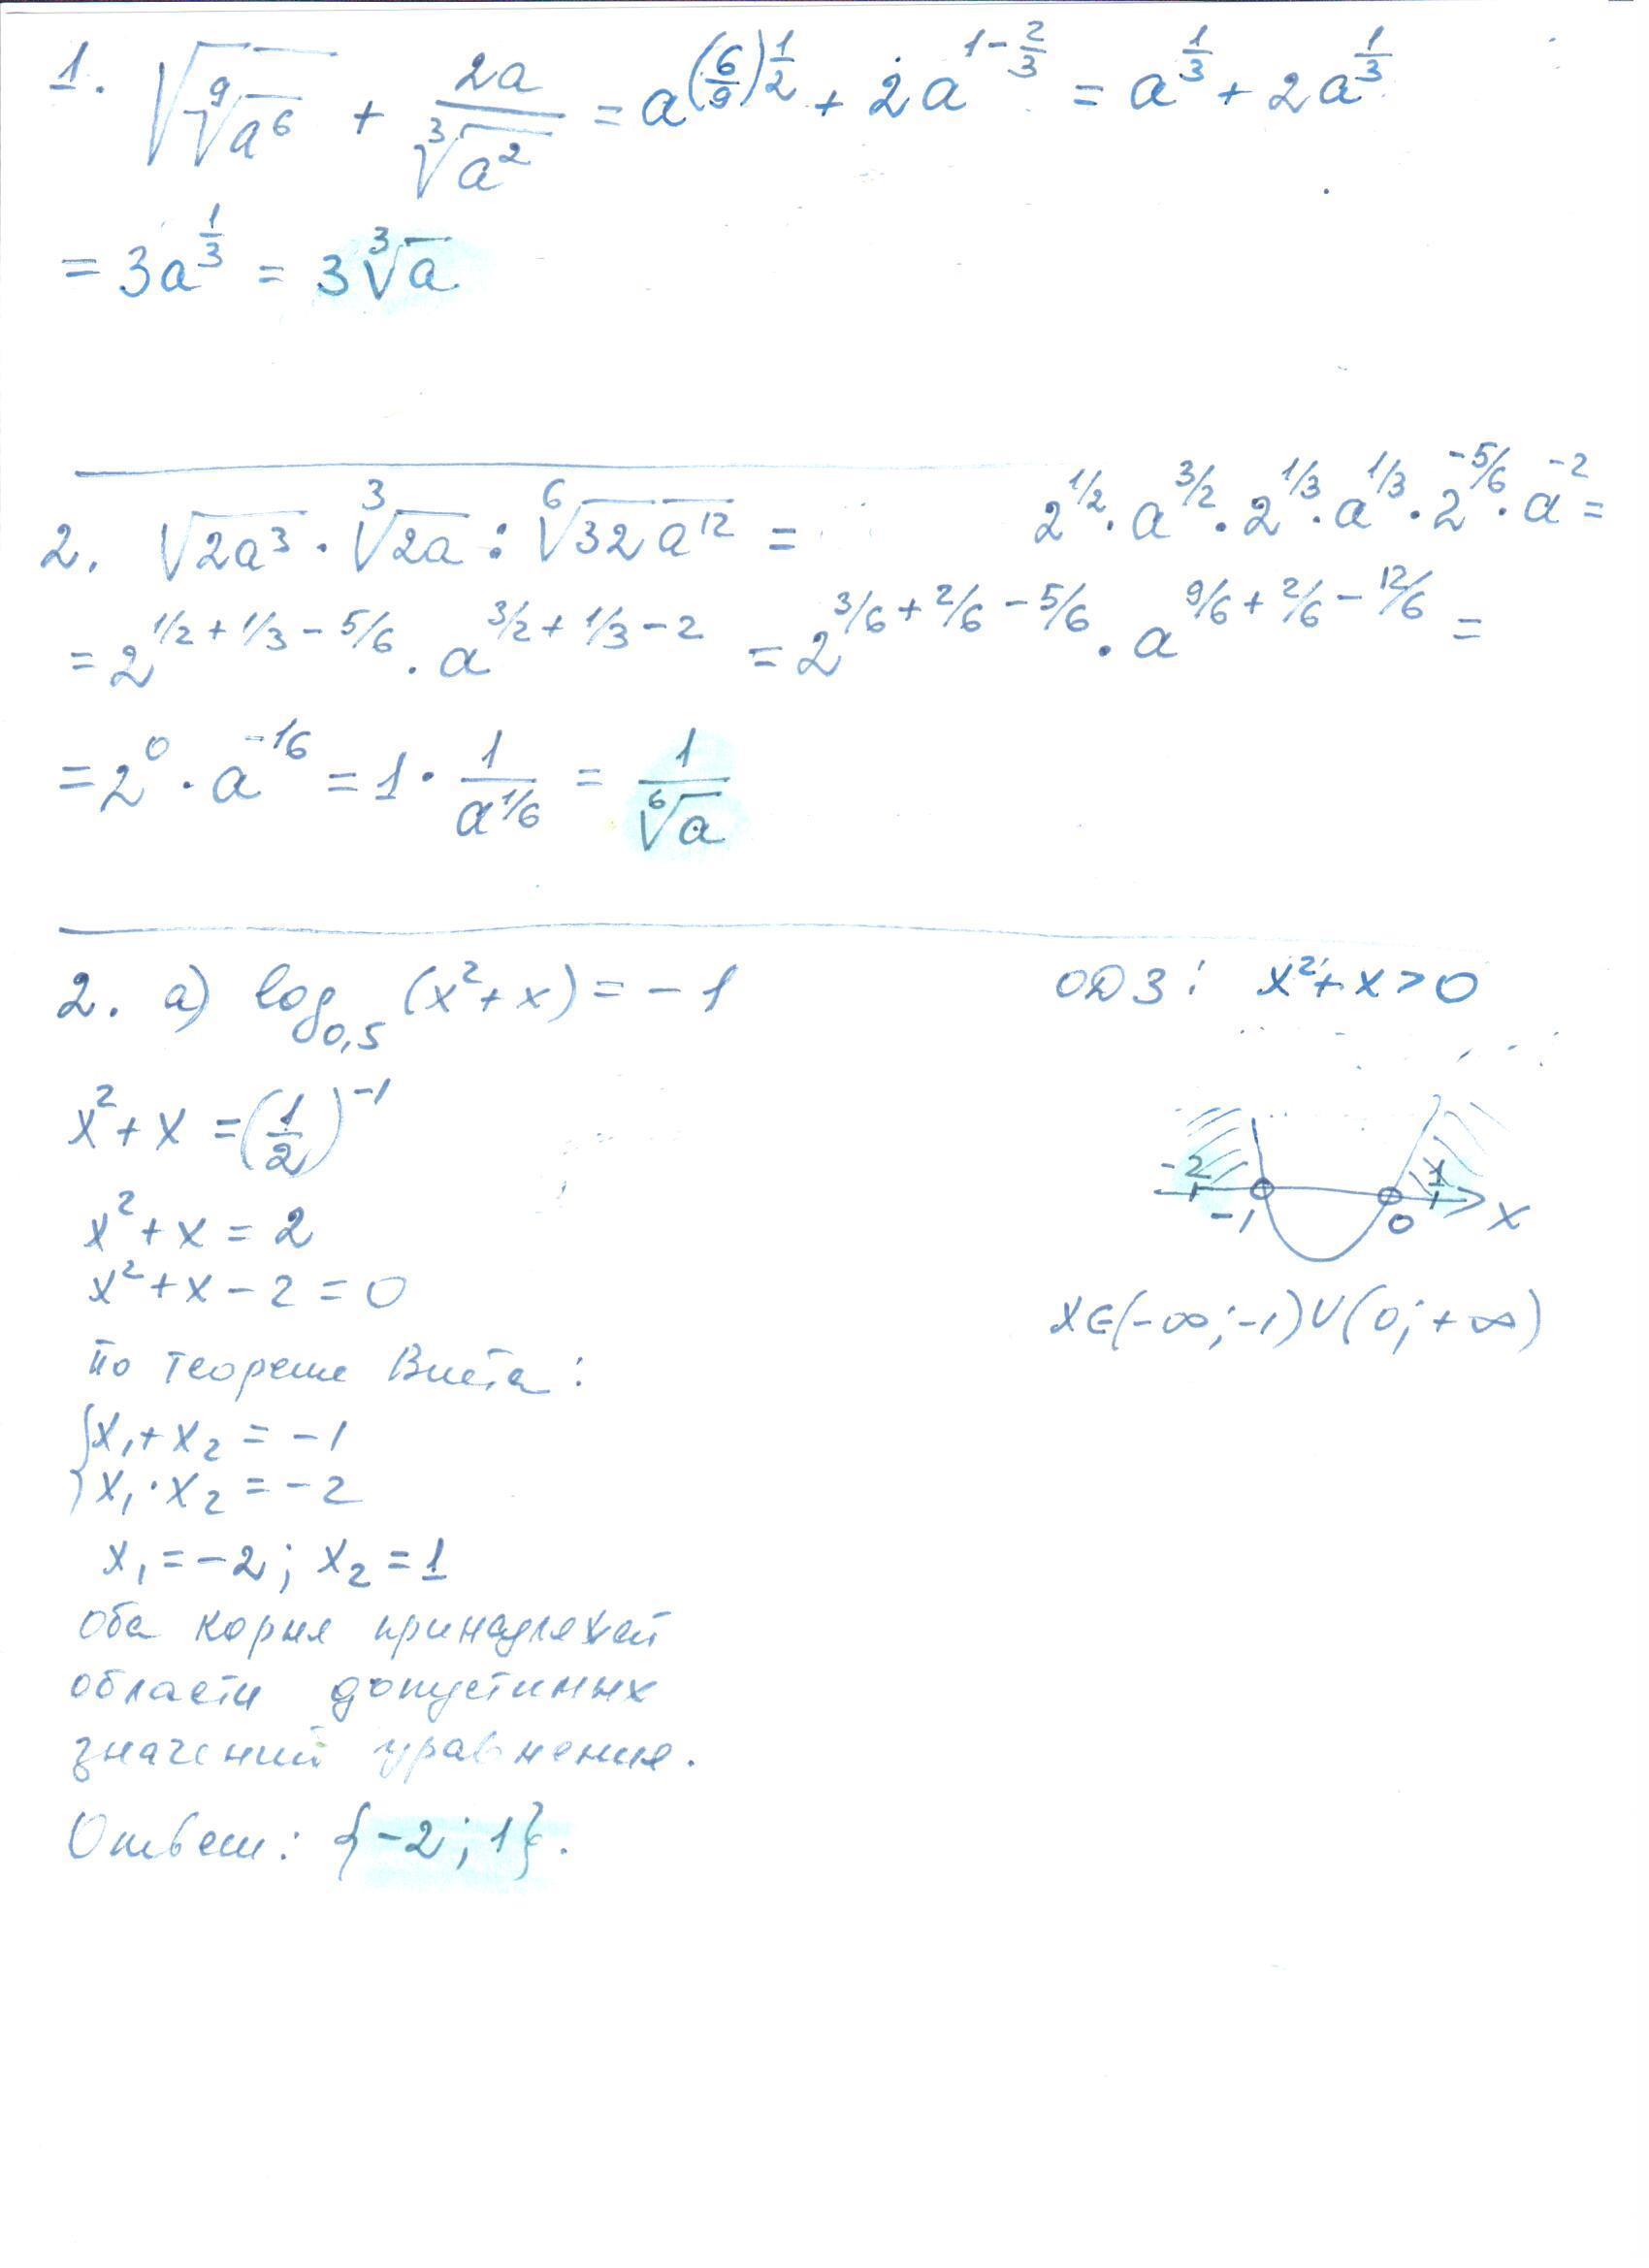 1. √(⁹√(a⁶)) + 2a/∛(a²) = a^((6/9)·1/2) + 2a^(1-2/3) = a^(1/3) + 2a^(1/3)
= 3a^(1/3) = 3∛a
2. √(2a³) · ∛(2a) : ⁶√(32a¹²) = 2^(1/2) · a^(3/2) · 2^(1/3) · a^(1/3) · 2^(-5/6) · a^(-2) =
= 2^(1/2 + 1/3 - 5/6) · a^(3/2 + 1/3 - 2) = 2^(3/6 + 2/6 - 5/6) · a^(9/6 + 2/6 - 12/6) =
= 2⁰ · a^(-1/6) = 1 · 1/a^(1/6) = 1/⁶√a
2. а) log₀,₅ (x² + x) = -1
x² + x = (1/2)⁻¹
x² + x = 2
x² + x - 2 = 0
по теореме Виета:
{x₁ + x₂ = -1
x₁ · x₂ = -2
x₁ = -2; x₂ = 1
оба корня принадлежат
области допустимых
значений уравнения.
Ответ: {-2; 1}.
ОДЗ: x² + x > 0
-2 1
-1 0 x
x∈(-∞; -1)∪(0; +∞)